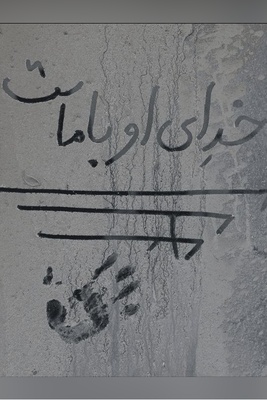 خدای او با ماست